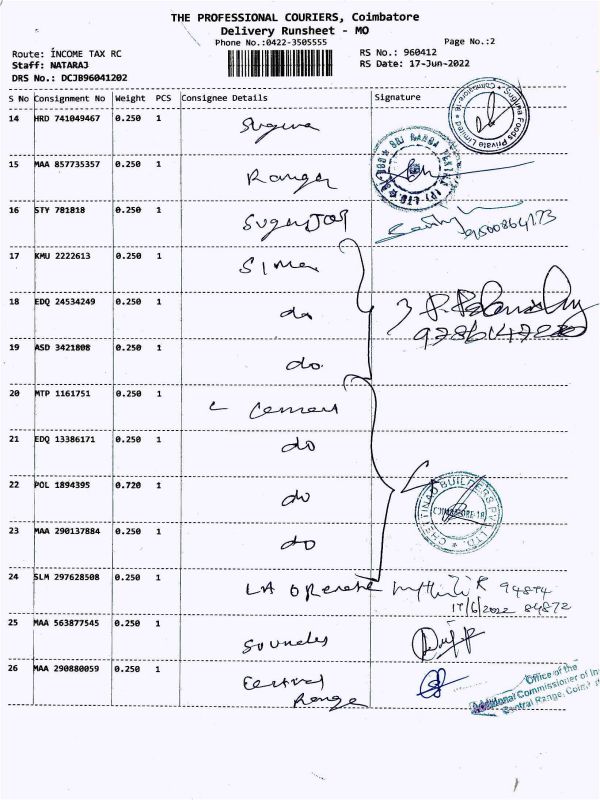 THE PROFESSIONAL COURIERS, Coimbatore
Delivery Runsheet - MO
Phone No.:0422-3505555
Page No.:2
Route: INCOME TAX RC
RS No.: 960412
Staff: NATARAJ
RS Date: 17-Jun-2022
DRS No.: DCJB96041202
S No Consignment No Weight PCS Consignee Details Signature
14 HRD 741049467 0.250 1 Suguna
Suguna Foods Private Limited * Coimbatore *
15 MAA 857735357 0.250 1 Ranga
16 STY 781818 0.250 1
17 KMU 2222613 0.250 1
18 EDQ 24534249 0.250 1 do
19 ASD 3421808 0.250 1 do
20 MTP 1161751 0.250 1 Cement
21 EDQ 13386171 0.250 1 do
22 POL 1894395 0.720 1 do
CHETTINAD BUILDERS PVT. LTD. * COIMBATORE-18
23 MAA 290137884 0.250 1 do
24 SLM 297628508 0.250 1 LA 94874
17/6/2022 84872
25 MAA 563877545 0.250 1
26 MAA 290880059 0.250 1 Central Range
Office of the
Additional Commissioner of
Central Range,